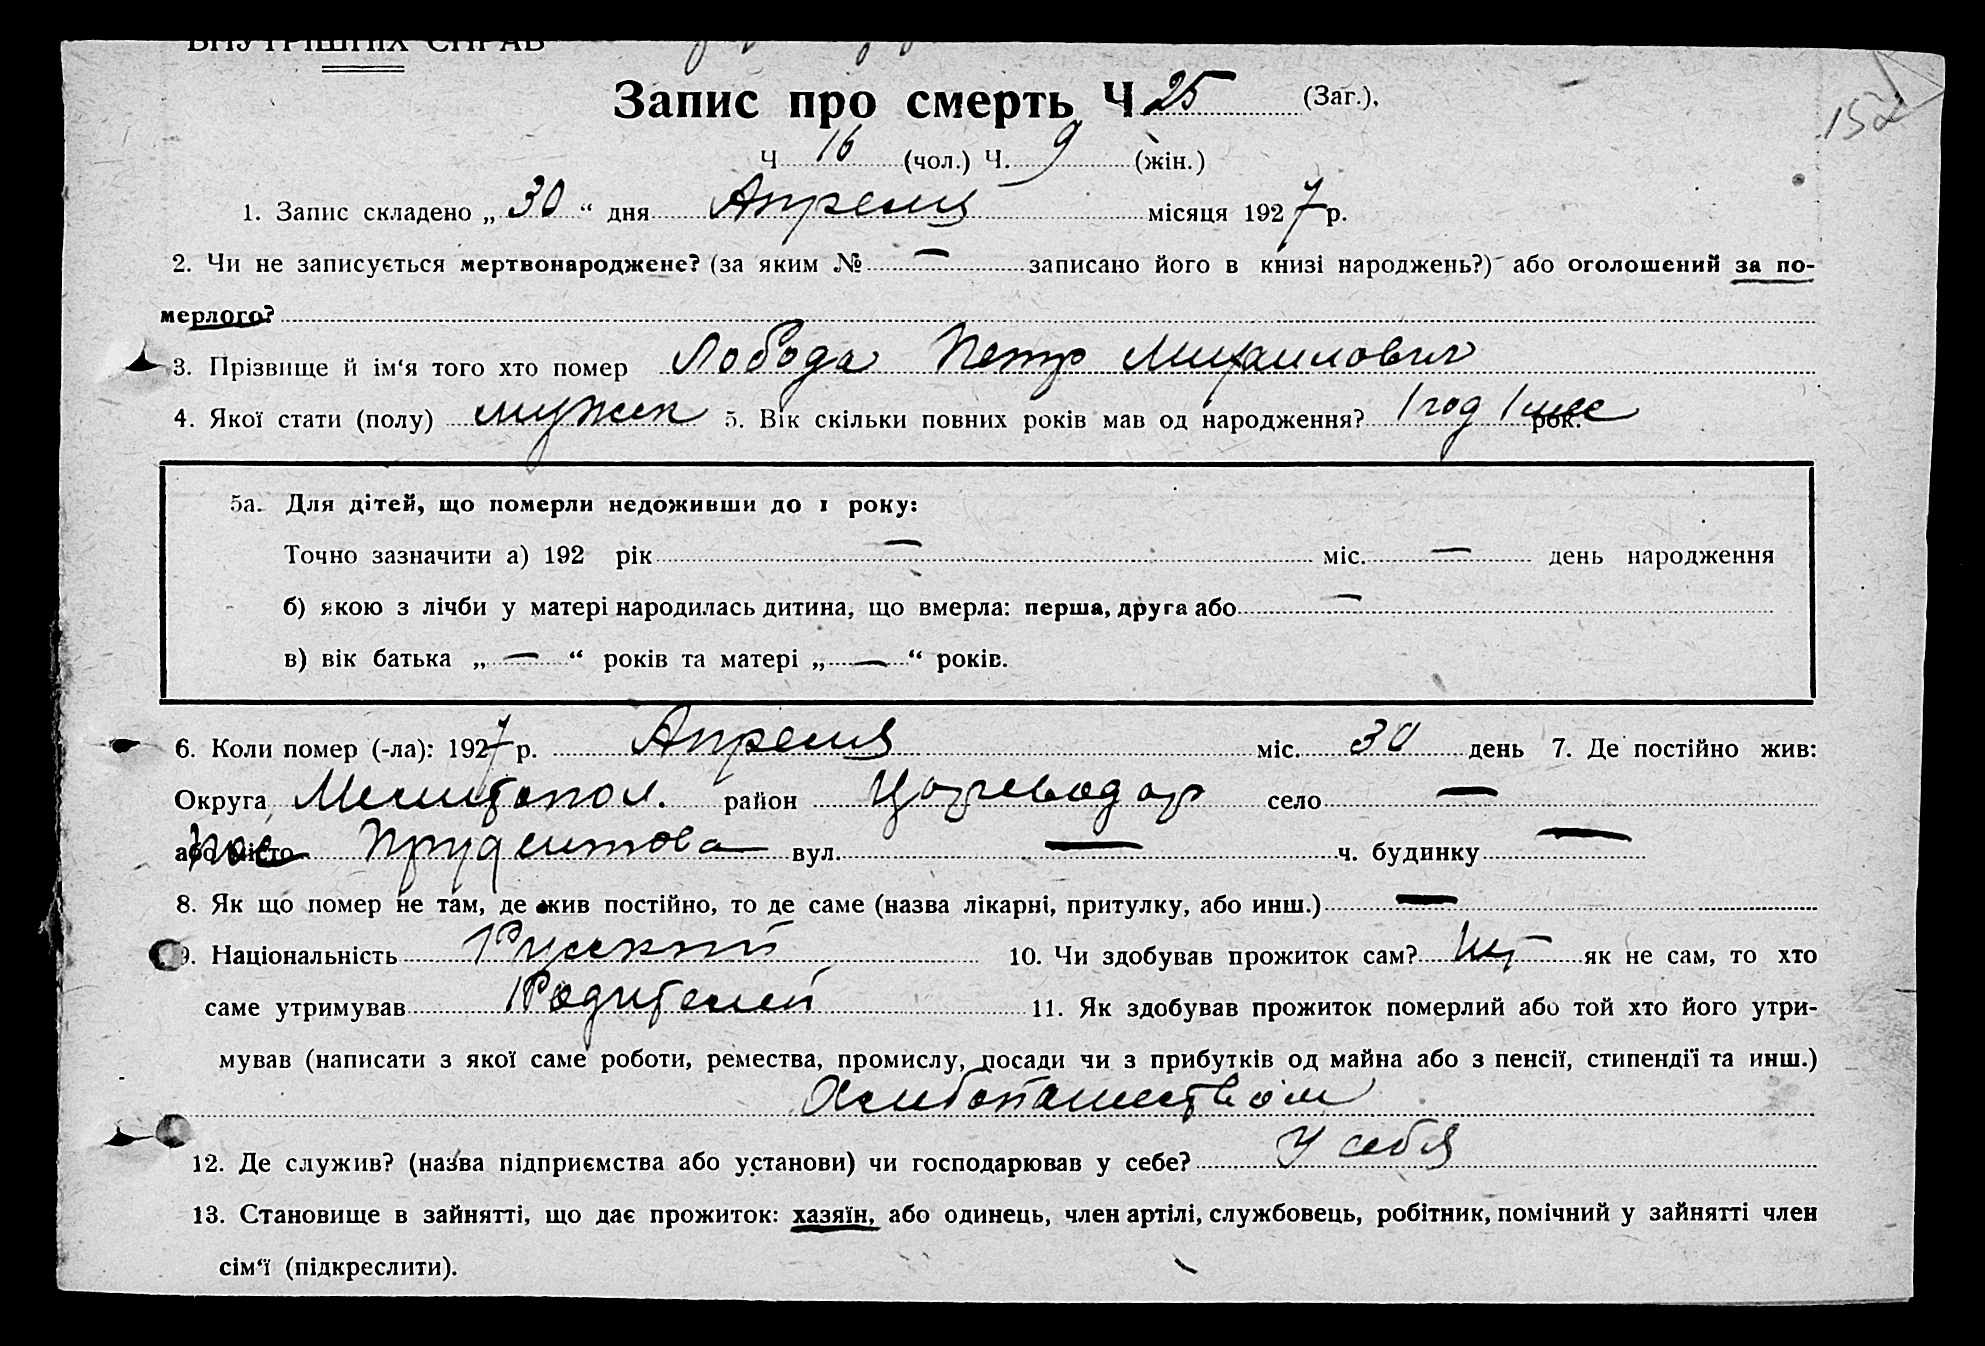 ВНУТРІШНІХ СПРАВ
Запис про смерть Ч 25 (Заг.).
152
Ч 16 (чол.) Ч. 9 (жін.)
1. Запис складено „ 30 “ дня Апреля місяця 1927 р.
2. Чи не записується мертвонароджене? (за яким № — записано його в книзі народжень?) або оголошений за по-
мерлого?
3. Прізвище й ім‘я того хто помер Лобода Петр Михаилович
4. Якої стати (полу) мужск 5. Вік скільки повних років мав од народження? 1 год 1 мес рок.
5а. Для дітей, що померли недоживши до 1 року:
Точно зазначити а) 192 рік — міс. — день народження
б) якою з лічби у матері народилась дитина, що вмерла: перша, друга або —
в) вік батька „ — “ років та матері „ — “ років.
6. Коли помер (-ла): 1927 р. Апреля міс. 30 день 7. Де постійно жив:
Округа Мелитопол. район Цареводар село —
або місто пос Прудентова вул. — ч. будинку —
8. Як що помер не там, де жив постійно, то де саме (назва лікарні, притулку, або инш.) —
9. Національність Русский 10. Чи здобував прожиток сам? Нет як не сам, то хто
саме утримував Родителей 11. Як здобував прожиток померлий або той хто його утри-
мував (написати з якої саме роботи, ремества, промислу, посади чи з прибутків од майна або з пенсії, стипендії та инш.)
Хлебопашеством
12. Де служив? (назва підприємства або установи) чи господарював у себе? У себя
13. Становище в зайнятті, що дає прожиток: хазяїн, або одинець, член артілі, службовець, робітник, помічний у зайнятті член
сім‘ї (підкреслити).